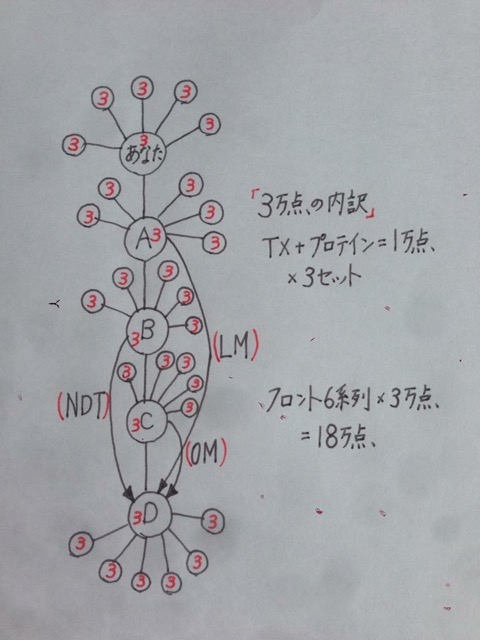 3
3
3
3
3
3
あなた
3
3
3
3
3
A3
「3万点の内訳」
TX+プロテイン=1万点、
×3セット
3
3
3
3
3
3B
(LM)
3
3
3
3
3
3C
(NDT)
(OM)
フロント6系列×3万点、
=18万点、
3D
3
3
3
3
3
3